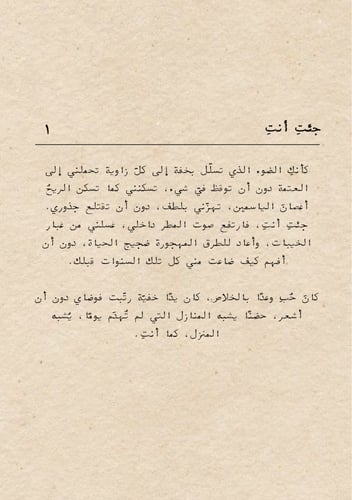 جئتِ أنتِ
١
كأنكِ الضوء الذي تسلّل بخفة إلى كلّ زاوية تحملني إلى
العتمة دون أن توقظ فيّ شيء، تسكنني كما تسكن الريحُ
أغصانَ الياسمين، تهزّني بلطف، دون أن تقتلع جذوري.
جئتِ أنتِ، فارتفع صوت المطر داخلي، غسلني من غبار
الخيبات، وأعاد للطرق المهجورة ضجيج الحياة، دون أن
أفهم كيف ضاعت مني كل تلك السنوات قبلك.
كانَ حُبٍ وعدًا بالخلاص، كان يدًا خفيّة رتّبت فوضاي دون أن
أشعر، حضنًا يشبه المنازل التي لم تُهدَم يومًا، يُشبه
المنزل، كما أنتِ.